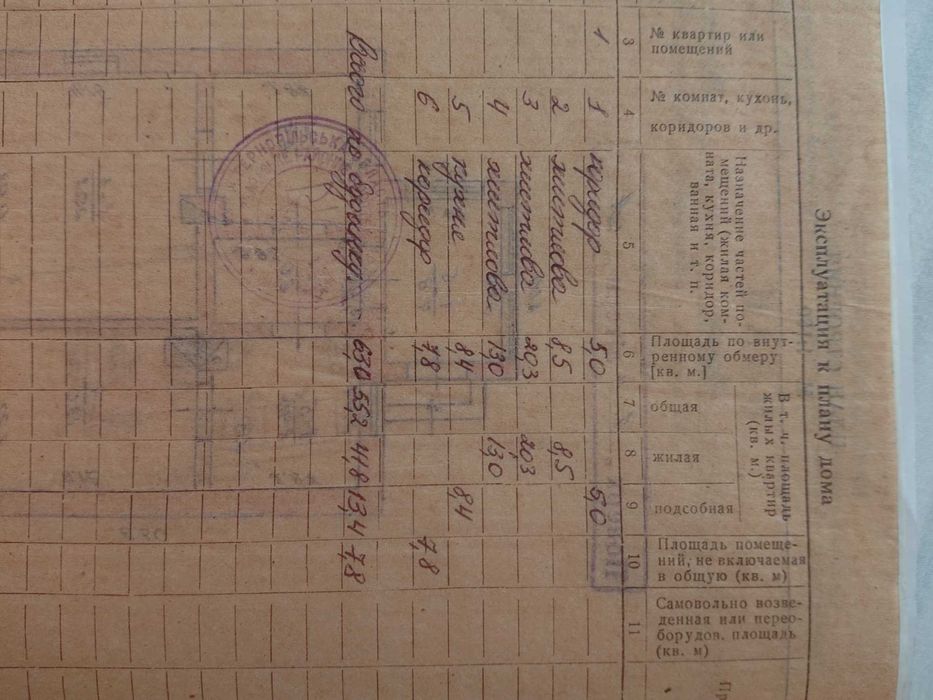 Эксплуатация к плану дома
№ квартир или помещений
№ комнат, кухонь, коридоров и др.
Назначение частей по-
мещений (жилая ком-
ната, кухня, коридор,
ванная и т. п.
Площадь по внут-
ренному обмеру
[кв. м.]
В т. ч. площадь
жилых квартир
(кв. м.)
общая
жилая
подсобная
Площадь помеще-
ний, не включаемая
в общую (кв. м)
Самовольно возве-
денная или перео-
борудов. площадь
(кв. м)
3 4 5 6 7 8 9 10 11
1 1 коридор 5,0 5,0
2 житлова 8,5 8,5
3 житлова 20,3 20,3
4 житлова 13,0 13,0
5 кухне 8,4 8,4
6 коридор 7,8 7,8
Всього по будинку 63,0 55,2 41,8 13,4 7,8